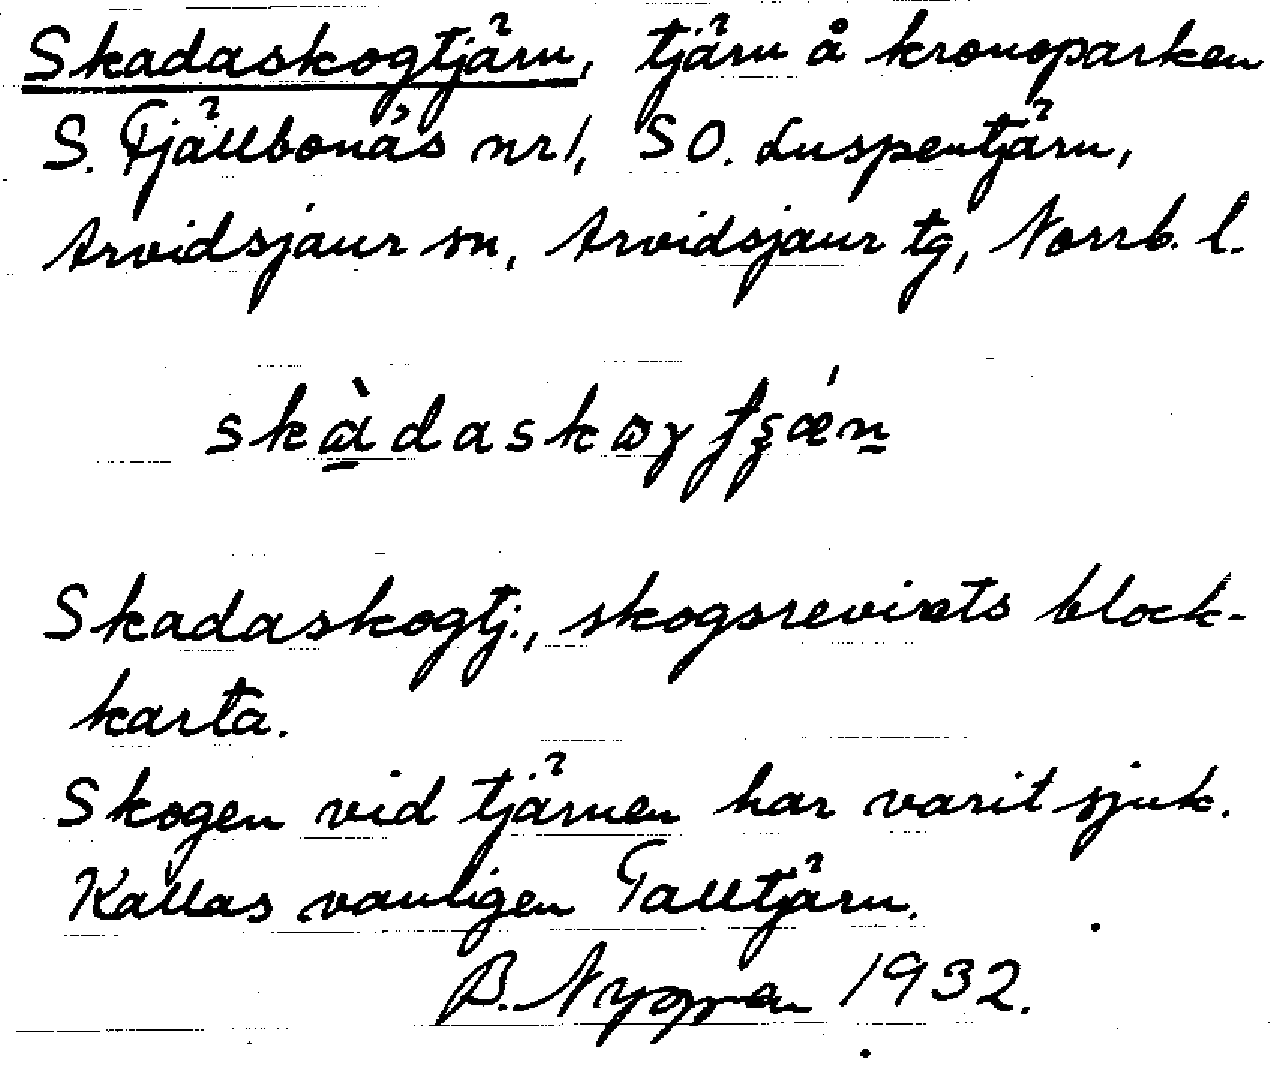 Skadaskogtjärn, tjärn å kronoparken
S. Fjällbonäs nr 1, SO. Luspentjärn,
Arvidsjaur sn, Arvidsjaur tg, Norrb. l.
Skadaskogtj., skogsrevirets block-
karta.
Skogen vid tjärnen har varit sjuk.
Kallas vanligen Talltjärn.
B. Nyman 1932.